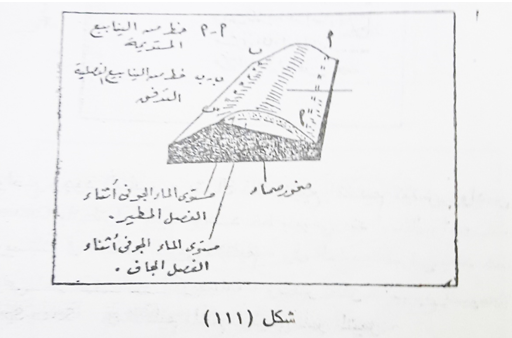 م-م خط من الينابيع
المستديمة
ن-ن خط من الينابيع الفصلية
التدفق
م
ن
ن
م
صخور صماء
مستوى الماء الجوفى أثناء
الفصل المطير.
مستوى الماء الجوفى أثناء
الفصل الجاف.
شكل (١١١)